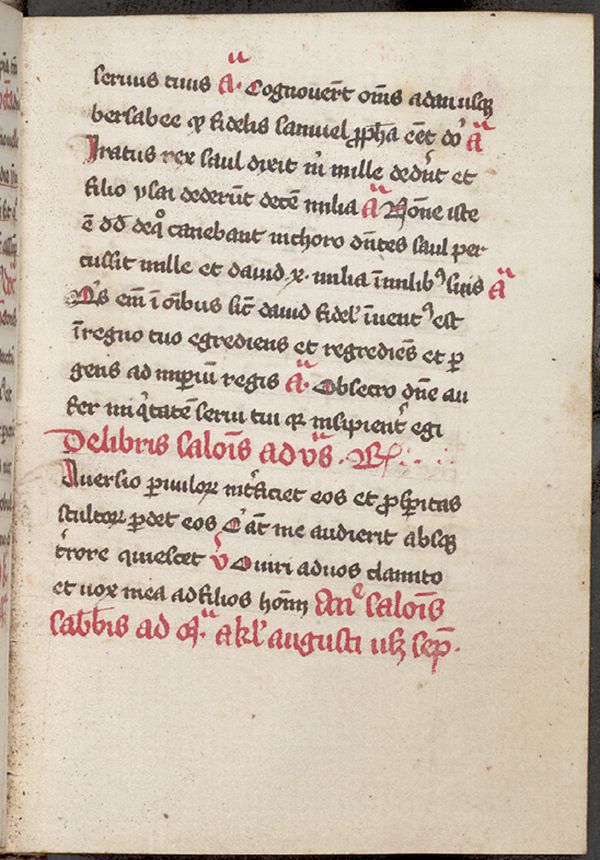 seruus tuus A̅. Cognouert̅ om̅s a dan usq̢
bersabee qͥ fidelis samuel ꝓph̅a ee̅t do̅ A̅
Iratus rex saul dixit m̅ mille dedn̅t et
filio ysai dederu̅t dece̅ milia A̅ No̅ne iste
e̅ dd̅ deq͛ canebant in choro dn̅tes saul per
cussit mille et dauid x. milia i̅ milibꝰ suis A̅
Q̅s em̅ i̅ oi̅bus sic̅ dauid fidel̅ i̅uentꝰ est
i̅ regno tuo egrediens et regredie̅s et p̱
gens ad imp̱iu̅ regis A̅. Obsecro dn̅e au
fer iniq̅tate̅ serui tui qꝛ insipient̅ egi
De libris salois̅ ad vs̅. R̸
Auersio p̱uuloꝝ int̅ficiet eos et ꝓsp̱itas
stultoꝝ p̱det eos Q̅ au̅t me audierit absq̢
t̅rore quiescet V̅ O uiri ad uos clamito
et uox mea ad filios hom̅ An͛ salois̅
sabb̅is ad m̅. a kl̅ augusti usq̢ sep̅.